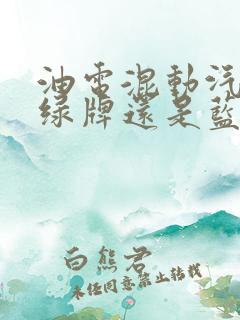 油电混動汽
绿牌还是蓝
白熊君
未经同意禁止转载